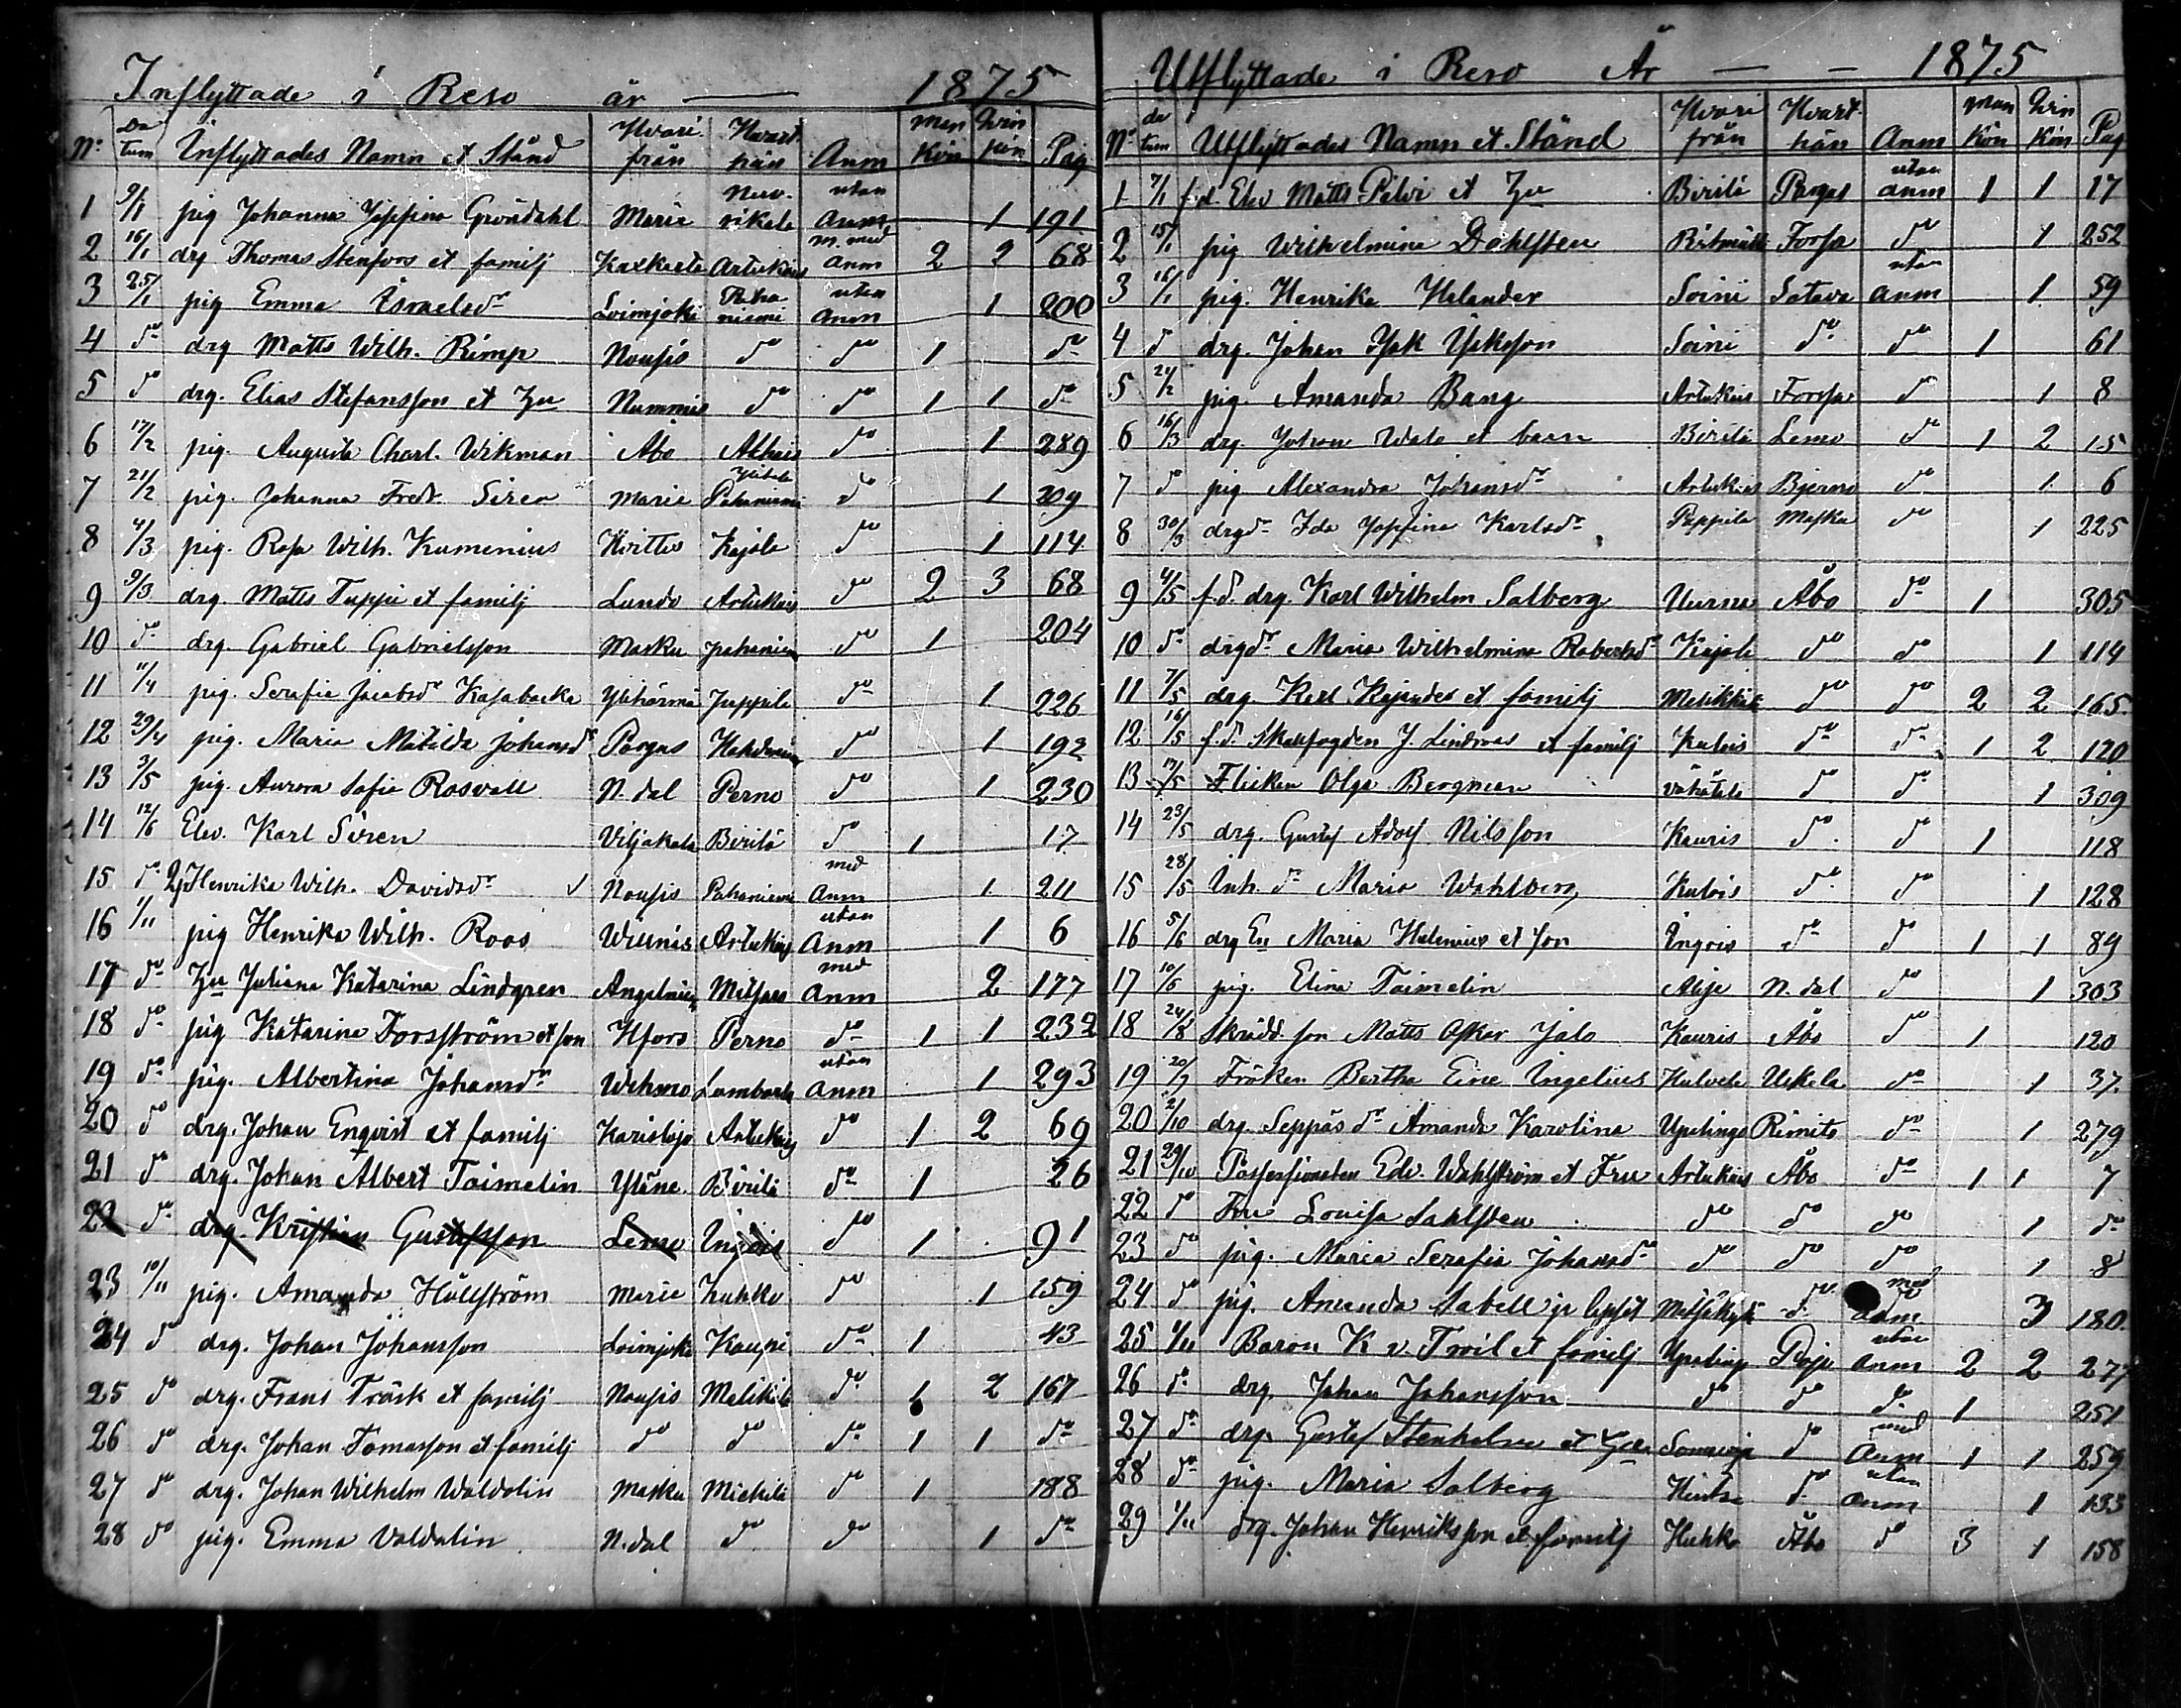 Inflyttade i Reso år — 1875
No. Datum Inflyttades Namn et Stånd Hvari från Hvart hän Anm Mankön Qvinkön Pag
1 9/1 pig Johanna Josefina Gröndahl Marie utan Anm 1 191
2 16/1 drg Thomas Stenfors et familj Artukais m. med Anm 2 2 68
3 25/1 pig Emma Israelsdr Loimjoki Pahaniemi utan Anm 1 200
4 do drg Matts Wilh. Rimp Nousis do do 1 do
5 do drg. Elias Stefansson et Hu Nummis do do 1 1 do
6 17/2 pig. Augusta Charl. Wikman Åbo do 1 289
7 21/2 pig. Johanna Fredr. Siren Marie Pahaniemi do 1 209
8 4/3 pig. Rosa Wilh. Krumenius Kajala do 1 114
9 9/3 drg. Matts Tuppi et familj Lundo Artukais do 2 3 68
10 do drg. Gabriel Gabrielsson Masku Pahaniemi do 1 204
11 11/4 pig. Serafia Jacobsdr Kasabacka Ylihärmä do 1 226
12 29/4 pig. Maria Matilda Johansdr Pargas do 1 192
13 3/5 pig. Aurora Sofia Rosvall N. dal Perno do 1 230
14 12/6 Elev. Karl Siren Viljakala Birilä do 1 17
15 do Henrika Wilh. Davidsdr Nousis Pahaniemi med Anm 1 211
16 1/11 pig Henrika Wilh. Roos Willnäs Artukais utan Anm 1 6
17 do Hu Juliana Katarina Lindgren Angelniemi med Anm 2 177
18 do pig Katarina Forsström et son Hfors Perno do 1 1 232
19 do pig. Albertina Johansdr Wehmo utan Anm 1 293
20 do drg. Johan Enqvist et familj Karislojo Artukais do 1 2 69
21 do drg. Johan Albert Taimelin Yläne Birilä do 1 26
22 do drg. Kristian Gustafsson Lemo Ingois do 1 91
23 10/11 pig. Amanda Hällström Marie Huhko do 1 159
24 do drg. Johan Johansson Loimjoki Kaupi do 1 43
25 do drg. Frans Träsk et familj Nousis Melikkilä do 1 2 167
26 do drg. Johan Tomasson et familj do do do 1 1 do
27 do drg. Johan Wilhelm Waldolin Masku Mickilä do 1 188
28 do pig. Emma Valdalin N. dal do do 1 do
Utflyttade i Reso År — — 1875
No datum Utflyttades Namn et Stånd Hvari från Hvart hän Anm Man Kön Qvin Kön Pag
1 7/1 f.d. Elev Matts Palvi et Hu Birilä Pargas utan anm 1 1 17
2 15/1 pig Wilhelmina Dahlsten Forssa do 1 252
3 16/1 pig. Henrika Helander Soini Satava utan Anm 1 59
4 do drg. Johan Isak Isaksson Soini do do 1 61
5 21/2 pig. Amanda Bang Artukais Forssa do 1 8
6 16/3 drg. Johan Walo et barn Birilä Lemo do 1 2 15
7 do pig Alexandra Johansdr Artukais Bjerno do 1 6
8 30/3 drgdr Ida Josefina Karlsdr Pappila Masku do 1 225
9 4/5 f.d. drg. Karl Wilhelm Salberg Åbo do 1 305
10 do drgdr Maria Wilhelmina Robertsdr Kajala do do 1 114
11 7/5 drg. Karl Kajander et familj Melikkilä do do 2 2 165
12 16/5 f.d. Skallfogden J. Lindroos et familj Kulois do do 1 2 120
13 17/5 Flickan Olga Bergman do do 1 309
14 23/5 drg. Gustaf Adolf Nilsson Kauris do do 1 118
15 28/5 Inh. dr Maria Wahlberg Kulois do do 1 128
16 5/6 drg En Maria Helenius et son Ingois do do 1 1 89
17 10/6 pig. Elina Taimelin N. dal do 1 303
18 24/8 Skrädd. son Matts Oskar Jalo Kauris Åbo do 1 120
19 20/9 Fröken Bertha Eine Ingelius Uskela do 1 37
20 2/10 drg. Seppäs dr Amanda Karolina Upalingo Rimito do 1 279
21 29/10 Possessionaten Edv. Wahlström et Fru Artukais Åbo do 1 1 7
22 do Fru Lovisa Sahlsten do do do 1 do
23 do pig. Maria Serafia Johansdr do do do 1 8
24 do pig. Amanda Sabell do med Anm 3 180
25 1/11 Baron K v Troil et familj Upalingo utan Anm 2 2 277
26 do drg. Johan Johansson do do do 1 251
27 do drg. Gustaf et Hu do med Anm 1 1 259
28 do pig. Maria Salberg do utan Anm 1 133
29 1/11 drg. Johan Henriksson et familj Huhko Åbo do 3 1 158